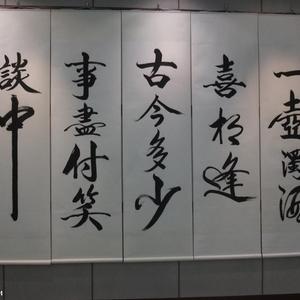 一壺濁酒
喜相逢
古今多少
事盡付笑
談中